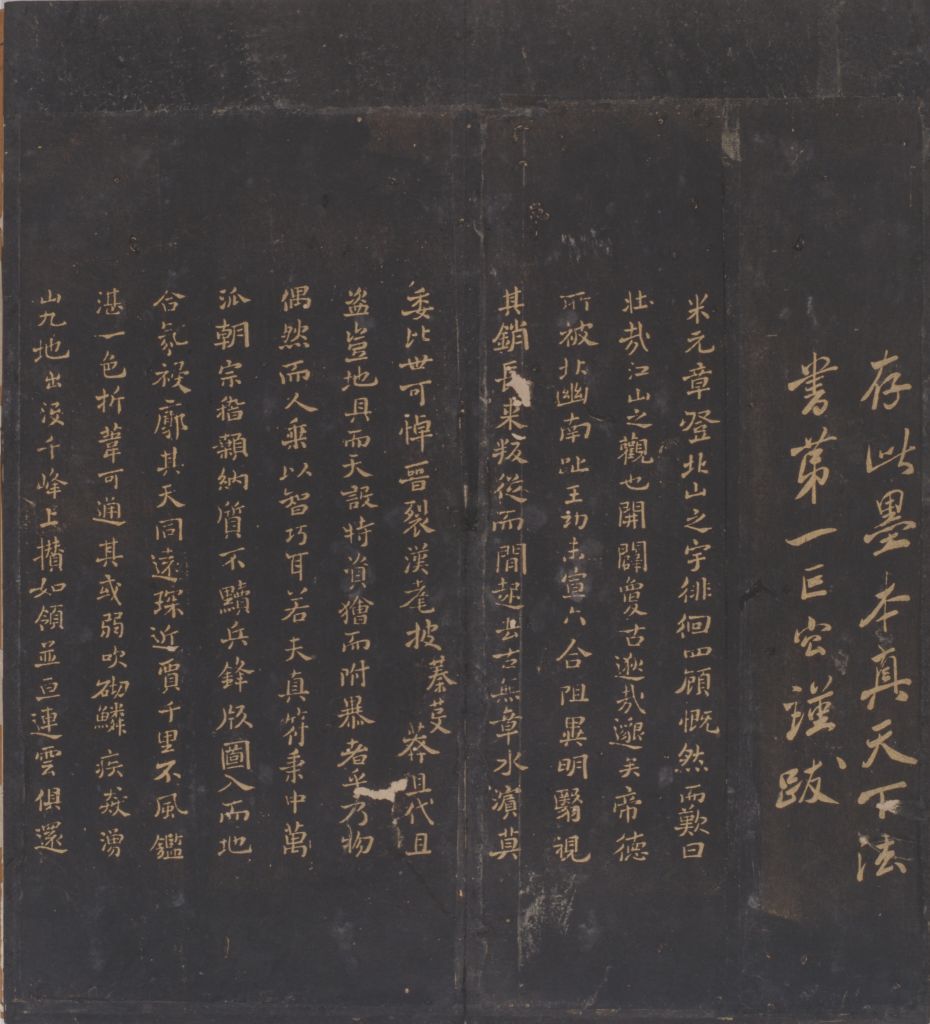 存此墨本真天下法
書第一謹跋
米元章登北山之宇徘徊四顧慨然而歎曰
壯哉江山之觀也開闢敻古逖哉邈矣帝德
所被北幽南趾王功未宣六合阻異明翳視
其銷長來叛從而間起去古無章水濱莫
委比世可悼晉裂漢耄披蓁芟莽狙代且
盜豈地具而天設特首獪而附暴者乎乃物
偶然而人乘以智巧耳若夫真符秉中萬
派朝宗稽顙納質不黷兵鋒版圖入而地
合氛祲廓其天同遠琛近賈千里不風鑑
湛一色折葦可通其或弱吹砌鱗疾焱湧
山九地出沒千峰上攢如領並亘連雲俱還